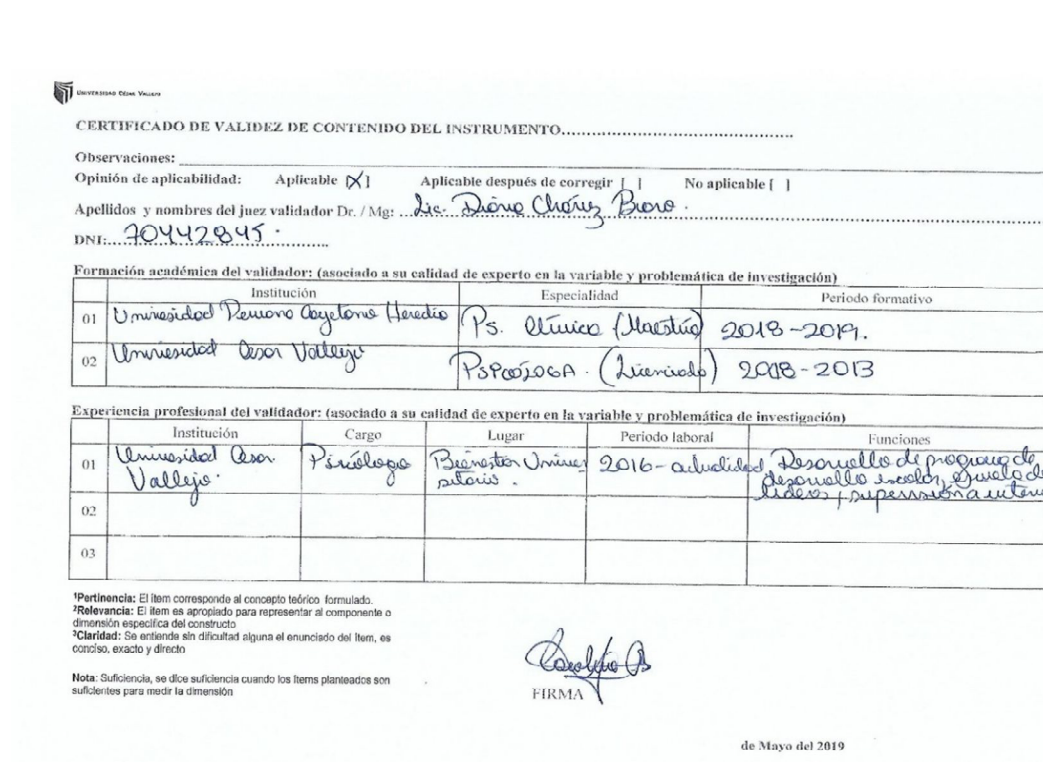 UNIVERSIDAD CÉSAR VALLEJO
CERTIFICADO DE VALIDEZ DE CONTENIDO DEL INSTRUMENTO...............................................
Observaciones:
Opinión de aplicabilidad: Aplicable [X] Aplicable después de corregir [ ] No aplicable [ ]
Apellidos y nombres del juez validador Dr. / Mg: Lic. Diana Chávez
DNI: 70442845
Formación académica del validador: (asociado a su calidad de experto en la variable y problemática de investigación)
Institución Especialidad Periodo formativo
01 Universidad Peruana Cayetano Heredia Ps. Clínica (Maestría) 2018-2019.
02 Universidad Cesar Vallejo (Licenciada) 2008-2013
Experiencia profesional del validador: (asociado a su calidad de experto en la variable y problemática de investigación)
Institución Cargo Lugar Periodo laboral Funciones
01 Universidad Cesar Vallejo. Psicóloga Bienestar Univer sitario. 2016-actualidad Desarrollo de programa de
desarrollo escolar, escuela de
líderes, supervisión a
02
03
¹Pertinencia: El ítem corresponde al concepto teórico formulado.
²Relevancia: El ítem es apropiado para representar al componente o
dimensión específica del constructo
³Claridad: Se entiende sin dificultad alguna el enunciado del ítem, es
conciso, exacto y directo
Nota: Suficiencia, se dice suficiencia cuando los ítems planteados son
suficientes para medir la dimensión
FIRMA
de Mayo del 2019